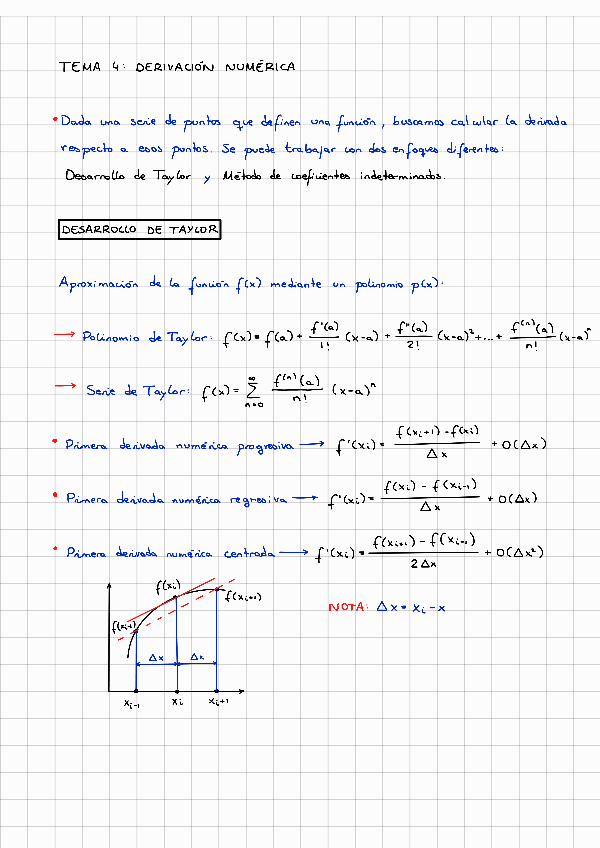 TEMA 4: DERIVACIÓN NUMÉRICA
• Dada una serie de puntos que definen una función, buscamos calcular la derivada
respecto a esos puntos. Se puede trabajar con dos enfoques diferentes:
Desarrollo de Taylor y Método de coeficientes indeterminados.
DESARROLLO DE TAYLOR
Aproximación de la función f(x) mediante un polinomio p(x):
→ Polinomio de Taylor: f(x) = f(a) + f'(a)/1! (x-a) + f''(a)/2! (x-a)² + ... + f⁽ⁿ⁾(a)/n! (x-a)ⁿ
→ Serie de Taylor: f(x) = ∑_{n=0}^{∞} f⁽ⁿ⁾(a)/n! (x-a)ⁿ
• Primera derivada numérica progresiva → f'(xᵢ) = f(xᵢ+1) - f(xᵢ) / Δx + O(Δx)
• Primera derivada numérica regresiva → f'(xᵢ) = f(xᵢ) - f(xᵢ₋₁) / Δx + O(Δx)
• Primera derivada numérica centrada → f'(xᵢ) = f(xᵢ₊₁) - f(xᵢ₋₁) / 2Δx + O(Δx²)
f(xᵢ)
f(xᵢ₊₁)
f(xᵢ₋₁)
NOTA: Δx = xᵢ - x
Δx Δx
xᵢ₋₁ xᵢ xᵢ₊₁